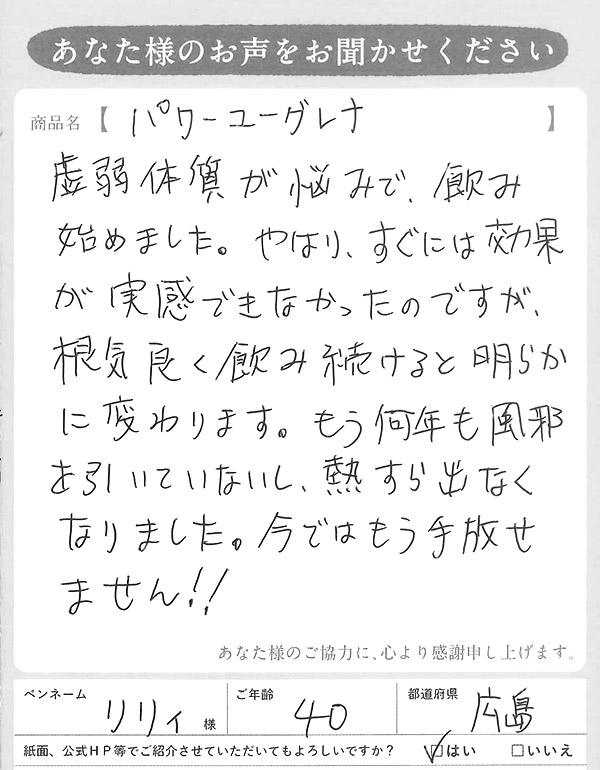 あなた様のお声をお聞かせください
商品名【 パワーユーグレナ 】
虚弱体質が悩みで、飲み
始めました。やはり、すぐには効果
が実感できなかったのですが、
根気良く飲み続けると明らか
に変わります。もう何年も風邪
を引いていないし、熱すら出なく
なりました。今ではもう手放せ
ません!!
あなた様のご協力に、心より感謝申し上げます。
ペンネーム リリィ 様 ご年齢 40 都道府県 広島
紙面、公式HP等でご紹介させていただいてもよろしいですか? ☑はい □いいえ